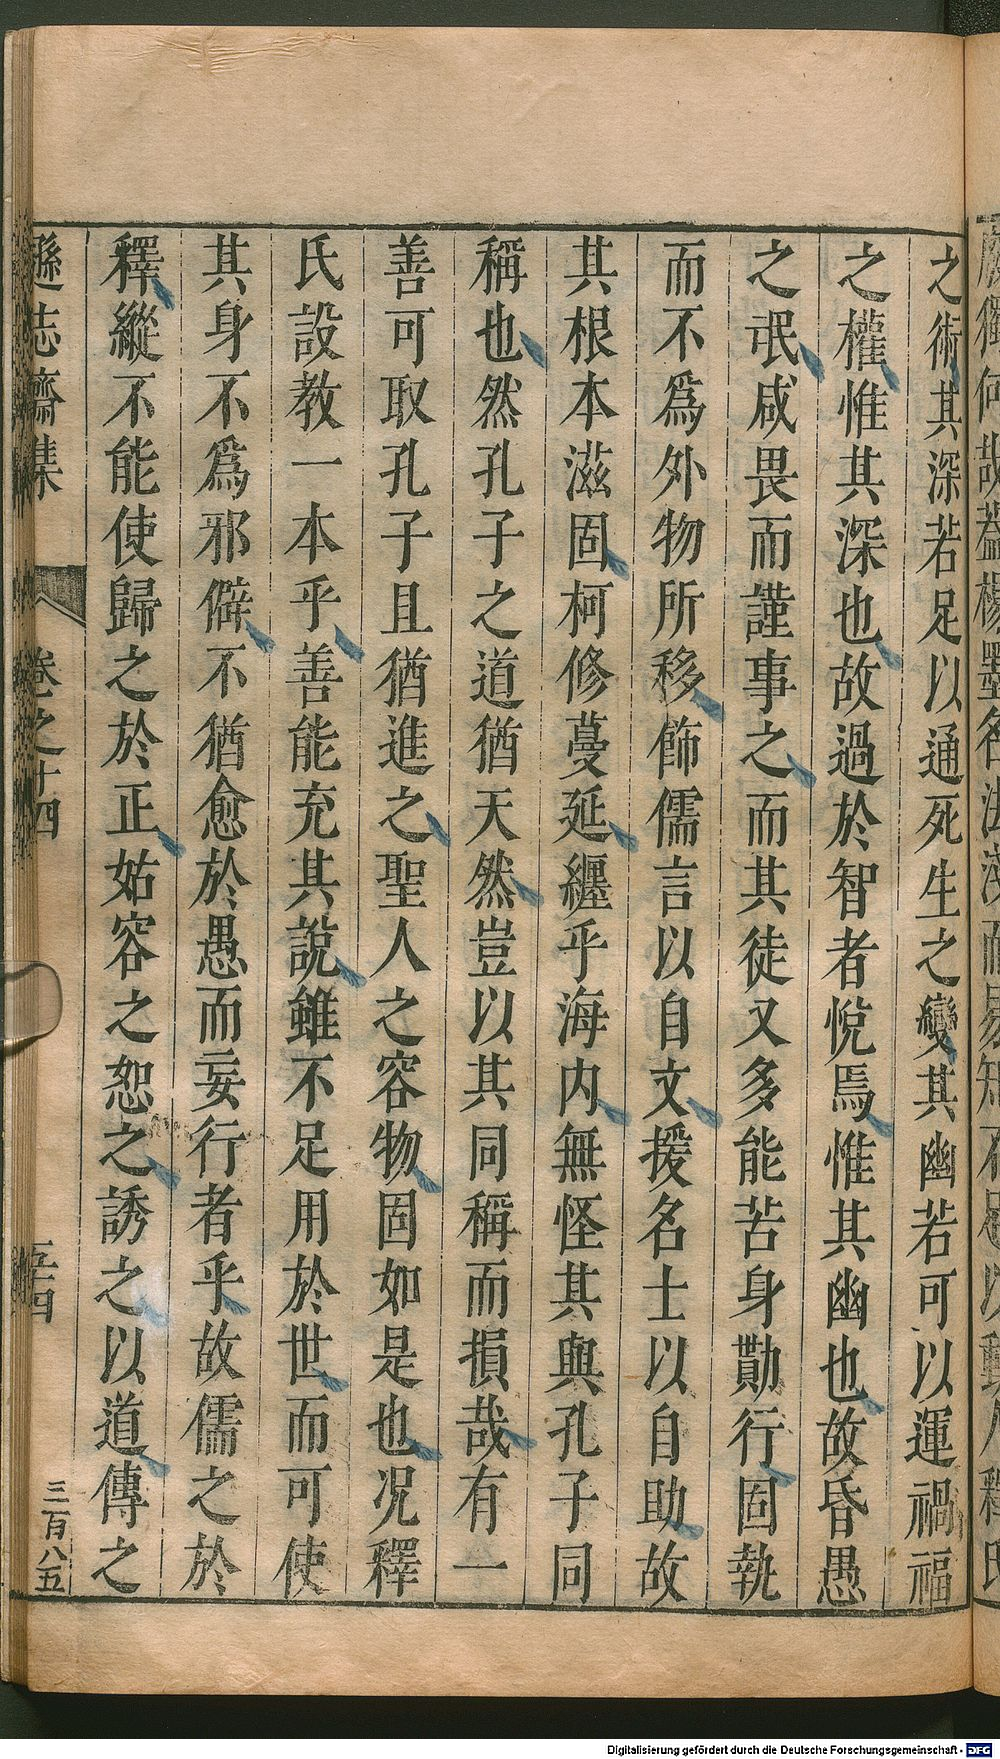 之術其深若足以通死生之變其幽若可以運禍福
之權惟其深也故過於智者悅焉惟其幽也故昏愚
之氓咸畏而謹事之而其徒又多能苦身勩行固執
而不爲外物所移飾儒言以自文援名士以自助故
其根本滋固柯修蔓延纏乎海内無怪其與孔子同
稱也然孔子之道猶天然豈以其同稱而損哉有一
善可取孔子且猶進之聖人之容物固如是也况釋
氏設教一本乎善能充其說雖不足用於世而可使
其身不爲邪僻不猶愈於愚而妄行者乎故儒之於
釋縱不能使歸之於正姑容之恕之誘之以道傳之
遜志齋集
卷之十四
五四
三百八五
Digitalisierung gefördert durch die Deutsche Forschungsgemeinschaft - DFG